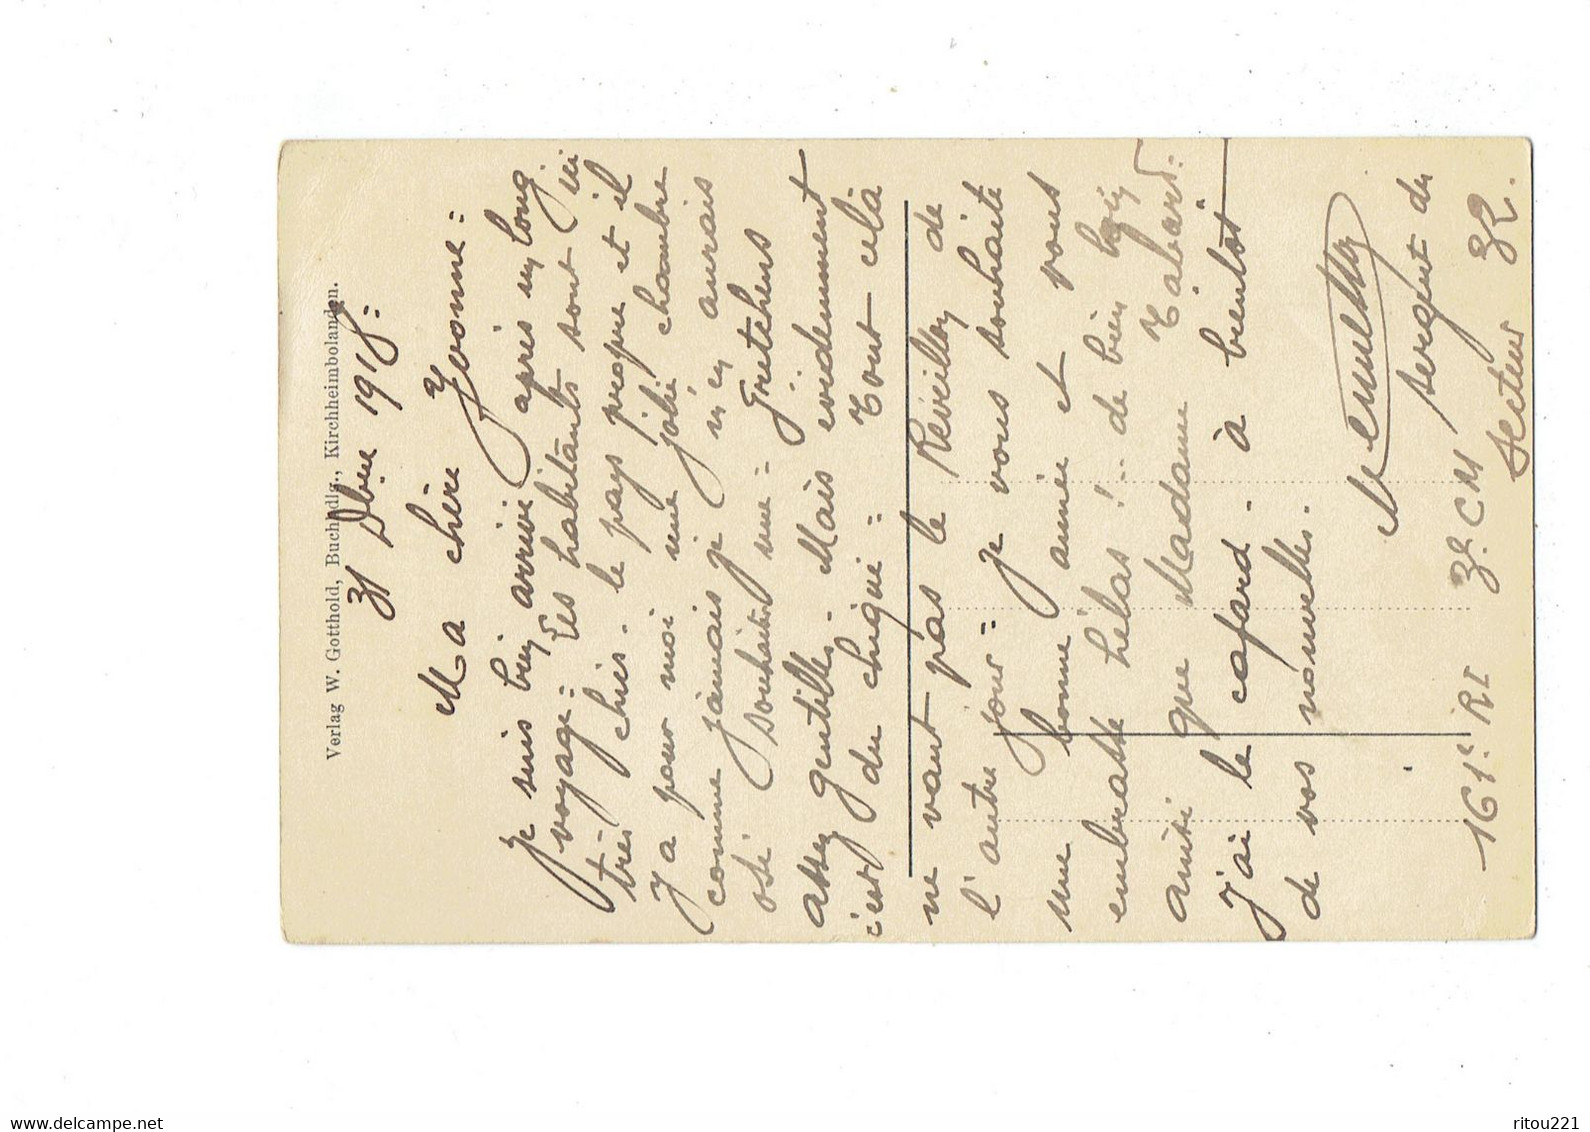 Verlag W. Gotthold, Buchhdlg., Kirchheimbolanden.
31 Dbre 1918 =
Ma chère Yvonne =
Je suis bien arrivé après un long
voyage = Les habitants sont ici
très chics. le pays propre et il
y a pour moi une jolie chambre
comme jamais je n'en aurais
osé souhaiter une = Gretchens
assez gentilles. Mais evidemment
c'est du chiqué = Tout celà
ne vaut pas le Réveillon de
l'autre jour = je vous souhaite
une bonne année et vous
embrasse hélas !.. de bien loin
ainsi que Madame Tabard =
J'ai le cafard. à bientôt
de vos nouvelles.
sergent au
161e RI 3e CM
Secteur 32.
ritou221